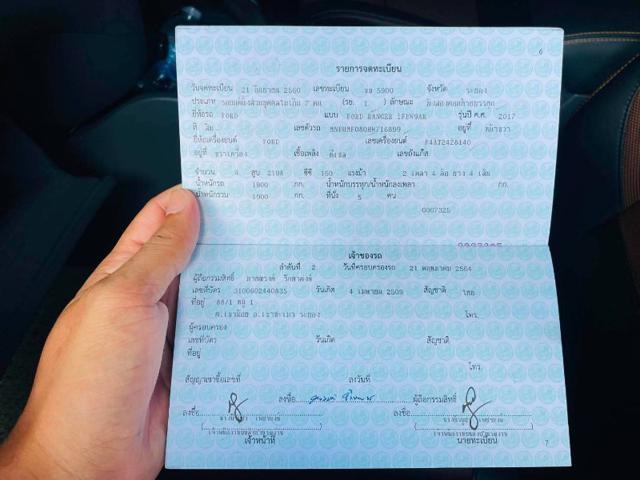 6
รายการจดทะเบียน
วันจดทะเบียน 21 กันยายน 2560 เลขทะเบียน 5900 จังหวัด ระยอง
ประเภท รถยนต์นั่งส่วนบุคคลไม่เกิน 7 คน (รย. 1 ) ลักษณะ
ยี่ห้อรถ FORD แบบ FORD RANGER รุ่นปี ค.ศ. 2017
เลขตัวรถ อยู่ที่
ยี่ห้อเครื่องยนต์ FORD เลขเครื่องยนต์ P4AT2428140
อยู่ที่ เชื้อเพลิง ดีเซล เลขถังแก๊ส
จำนวน 4 สูบ 2198 ซีซี 150 แรงม้า 2 เพลา 4 ล้อ ยาง 4 เส้น
น้ำหนักรถ 1900 กก. น้ำหนักบรรทุก/น้ำหนักลงเพลา กก.
น้ำหนักรวม 1900 กก. ที่นั่ง 5 คน
0007325
เจ้าของรถ
ลำดับที่ 2 วันที่ครอบครองรถ 21 พฤษภาคม 2564
ผู้ถือกรรมสิทธิ์
เลขที่บัตร 3100602440835 วันเกิด 4 เมษายน 2509 สัญชาติ ไทย
ที่อยู่ 88/1 หมู่ 1
โทร.
ผู้ครอบครอง
เลขที่บัตร วันเกิด สัญชาติ
ที่อยู่
โทร.
สัญญาเช่าซื้อเลขที่ ลงวันที่
ลงชื่อ ผู้ถือกรรมสิทธิ์
ลงชื่อ ลงชื่อ
เจ้าหน้าที่ นายทะเบียน
7